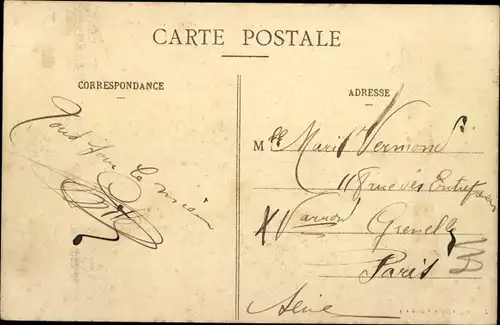 CARTE POSTALE
CORRESPONDANCE
Tout pour le mieux
ADRESSE
Mlle Marie Vermond
118 rue des Entrepreneurs
Grenelle
Paris
Seine